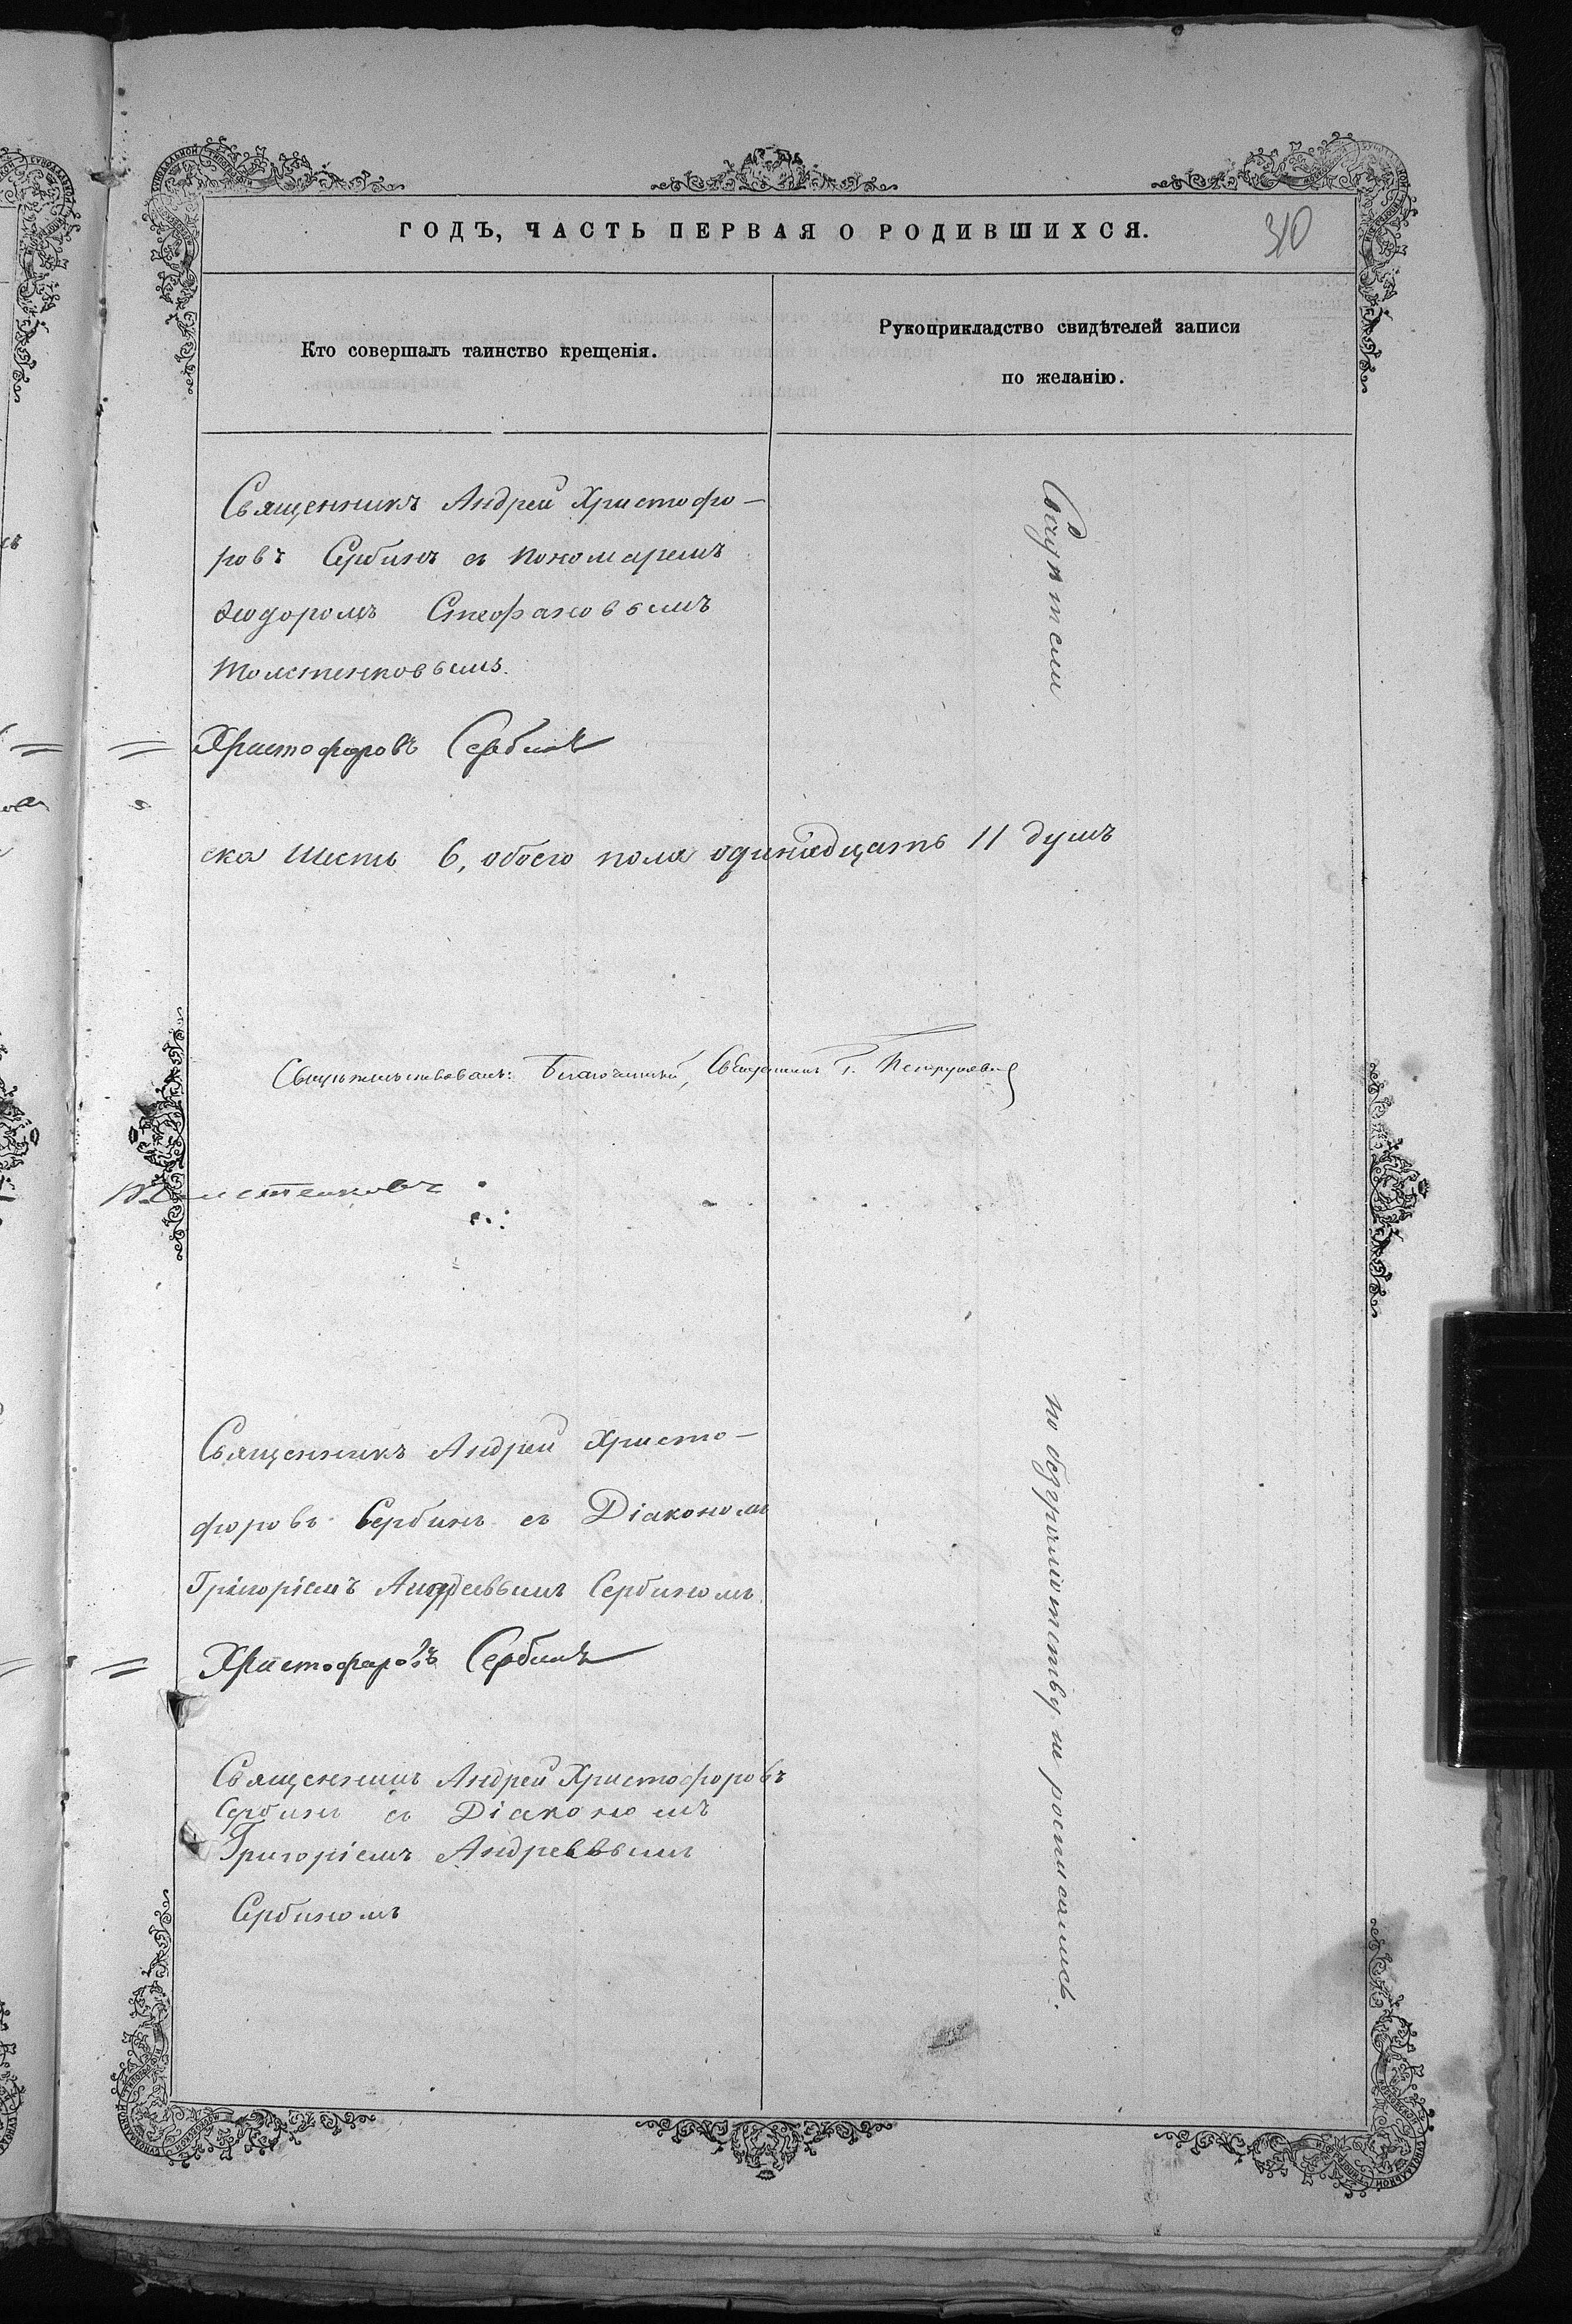 ГОДЪ, ЧАСТЬ ПЕРВАЯ О РОДИВШИХСЯ.
310
Кто совершалъ таинство крещенія.
Рукоприкладство свидѣтелей записи
по желанію.
Священникъ Андрей Христофо-
ровъ Сербинъ съ пономаремъ
Ѳеодоромъ Стефановымъ
Толстенковымъ.
= Христофоровъ Сербинъ
ска шесть 6, обоего пола одинадцать 11 душъ
Свидѣтельствовалъ: Благочинный, Священникъ Г.
Толстенковъ
Священникъ Андрей Христо-
форовъ Сербинъ съ Діакономъ
Григоріемъ Андреевымъ Сербиномъ
= Христофоровъ Сербинъ
Священникъ Андрей Христофоровъ
Сербинъ съ Діакономъ
Григоріемъ Андреевымъ
Сербиномъ
Свидѣтели
по безграмотству не росписались.